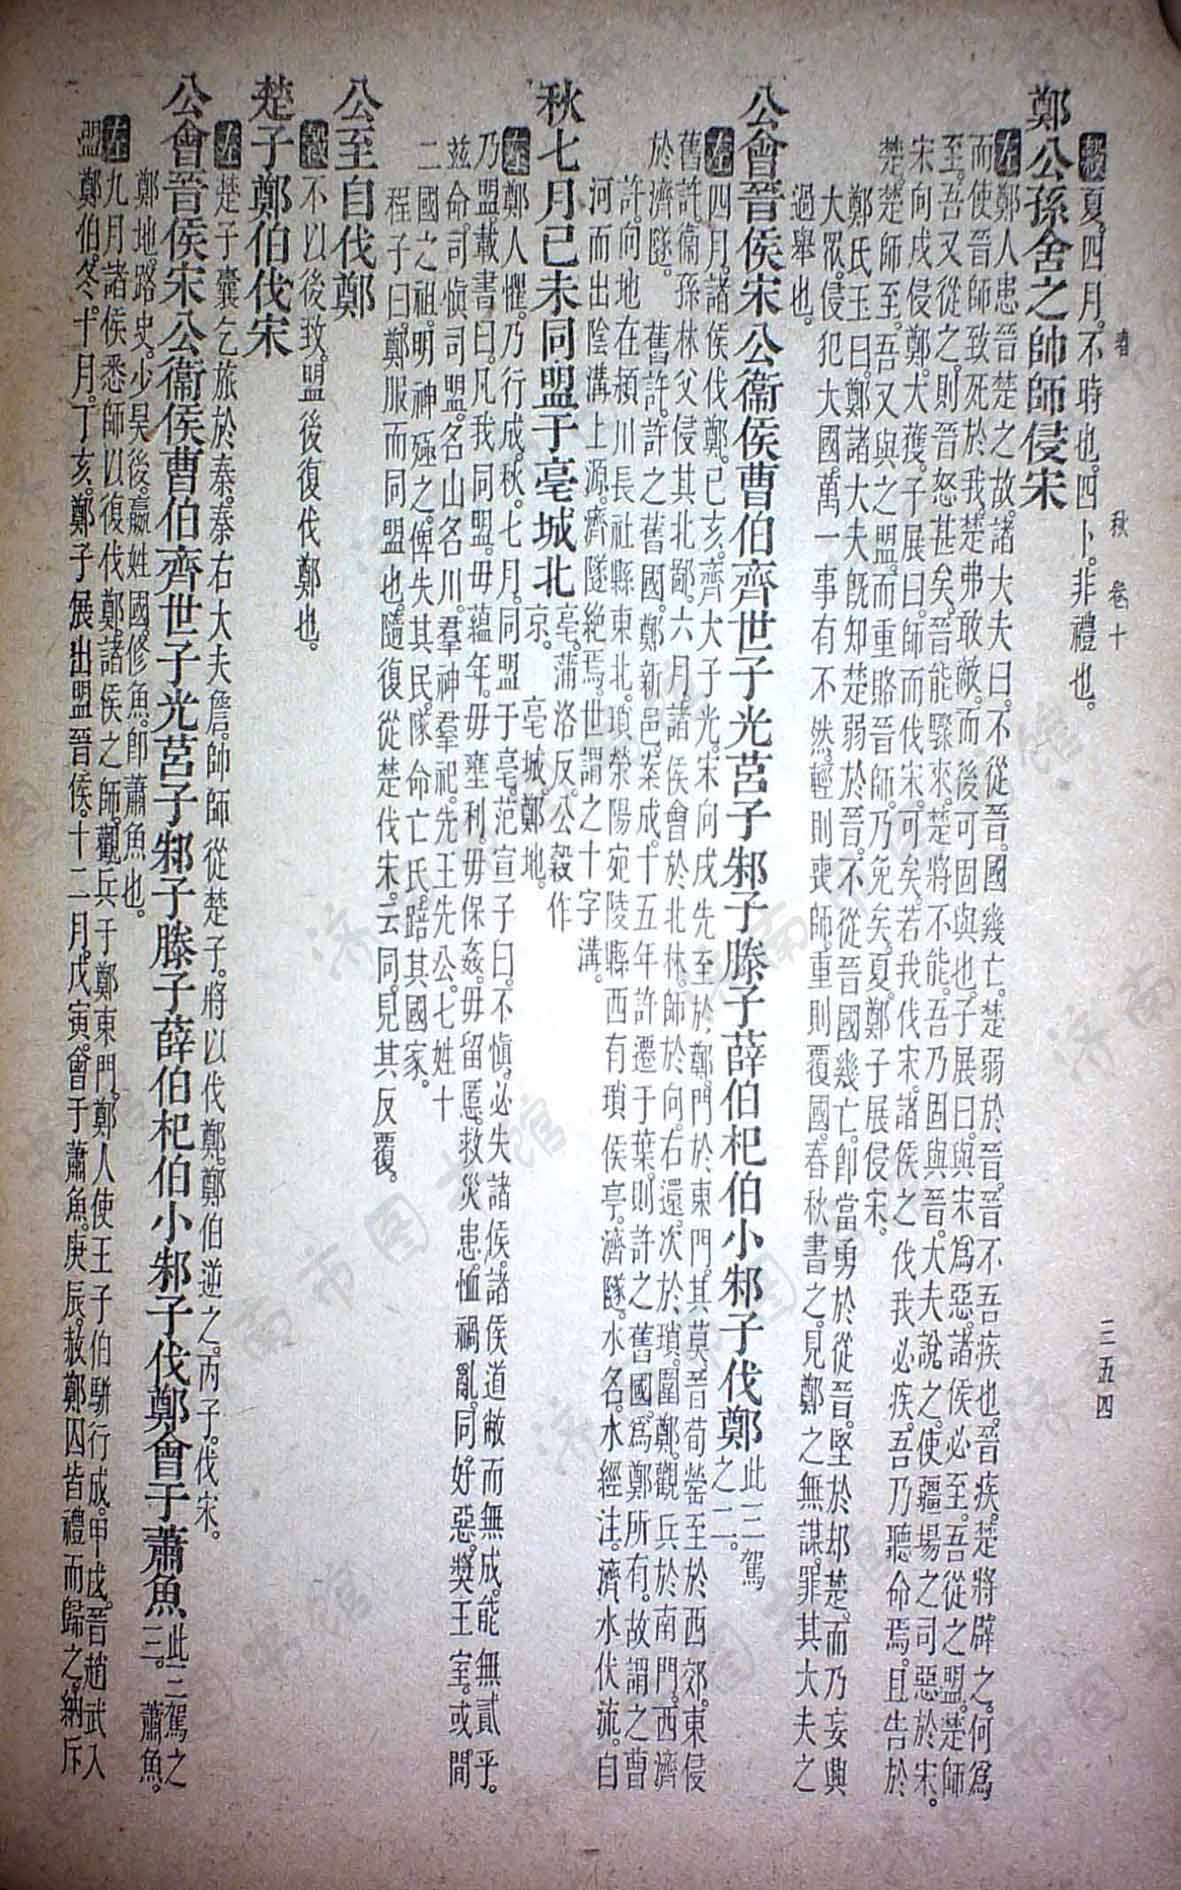 春秋 卷十 三五四
穀夏。四月。不時也。四卜。非禮也。
鄭公孫舍之帥師侵宋
左鄭人患晉楚之故。諸大夫曰。不從晉。國幾亡。楚弱於晉。晉不吾疾也。晉疾。楚將辟之。何爲
而使晉師致死於我。楚弗敢敵。而後可固與也。子展曰。與宋爲惡。諸侯必至。吾從之盟。楚師
至。吾又從之。則晉怒甚矣。晉能驟來。楚將不能。吾乃固與晉。大夫說之。使疆場之司惡於宋。
宋向戌侵鄭。大獲。子展曰。師而伐宋。可矣。若我伐宋。諸侯之伐我必疾。吾乃聽命焉。且告於
楚。楚師至。吾又與之盟。而重賂晉師。乃免矣。夏。鄭子展侵宋。
鄭氏玉曰。鄭諸大夫旣知楚弱於晉。不從晉國幾亡。卽當勇於從晉。堅於却楚。而乃妄與
大眾。侵犯大國。萬一事有不然。輕則喪師。重則覆國。春秋書之。見鄭之無謀。罪其大夫之
過舉也。
公會晉侯宋公衞侯曹伯齊世子光莒子邾子滕子薛伯杞伯小邾子伐鄭 此三駕之二。
左四月。諸侯伐鄭。己亥。齊大子光。宋向戌先至於鄭。門於東門。其莫。晉荀罃至於西郊。東侵
舊許。衞孫林父侵其北鄙。六月。諸侯會於北林。師於向。右還。次於瑣。圍鄭。觀兵於南門。西濟
於濟隧。 舊許。許之舊國。鄭新邑。案成。十五年許遷于葉。則許之舊國。爲鄭所有。故謂之曹
許。向地在潁川長社縣東北。瑣滎陽宛陵縣西有瑣侯亭。濟隧。水名。水經注。濟水伏流。自
河而出陰溝上源。濟隧絕焉。世謂之十字溝。
秋七月己未同盟于亳城北 亳。蒲洛反。公穀作京。 亳城。鄭地。
左鄭人懼。乃行成。秋。七月。同盟于亳。范宣子曰。不愼。必失諸侯。諸侯道敝而無成。能無貳乎。
乃盟。載書曰。凡我同盟。毋蘊年。毋壅利。毋保姦。毋留慝。救災患。恤禍亂。同好惡。獎王室。或間
茲命。司愼司盟。名山名川。羣神羣祀。先王先公。七姓十
二國之祖。明神殛之。俾失其民。隊命亡氏。踣其國家。
程子曰。鄭服而同盟也。隨復從楚伐宋。云同。見其反覆。
公至自伐鄭
穀不以後致。盟後復伐鄭也。
楚子鄭伯伐宋
左楚子囊乞旅於秦。秦右大夫詹。帥師從楚子。將以伐鄭。鄭伯逆之。丙子。伐宋。
公會晉侯宋公衞侯曹伯齊世子光莒子邾子滕子薛伯杞伯小邾子伐鄭會于蕭魚 此三駕之三。 蕭魚。
鄭地。路史。少昊後。嬴姓國。修魚。卽蕭魚也。
左九月。諸侯悉師以復伐鄭。諸侯之師。觀兵于鄭東門。鄭人使王子伯騈行成。甲戌。晉趙武入
盟鄭伯。冬。十月。丁亥。鄭子展出盟晉侯。十二月。戊寅。會于蕭魚。庚辰。赦鄭囚。皆禮而歸之。納斥